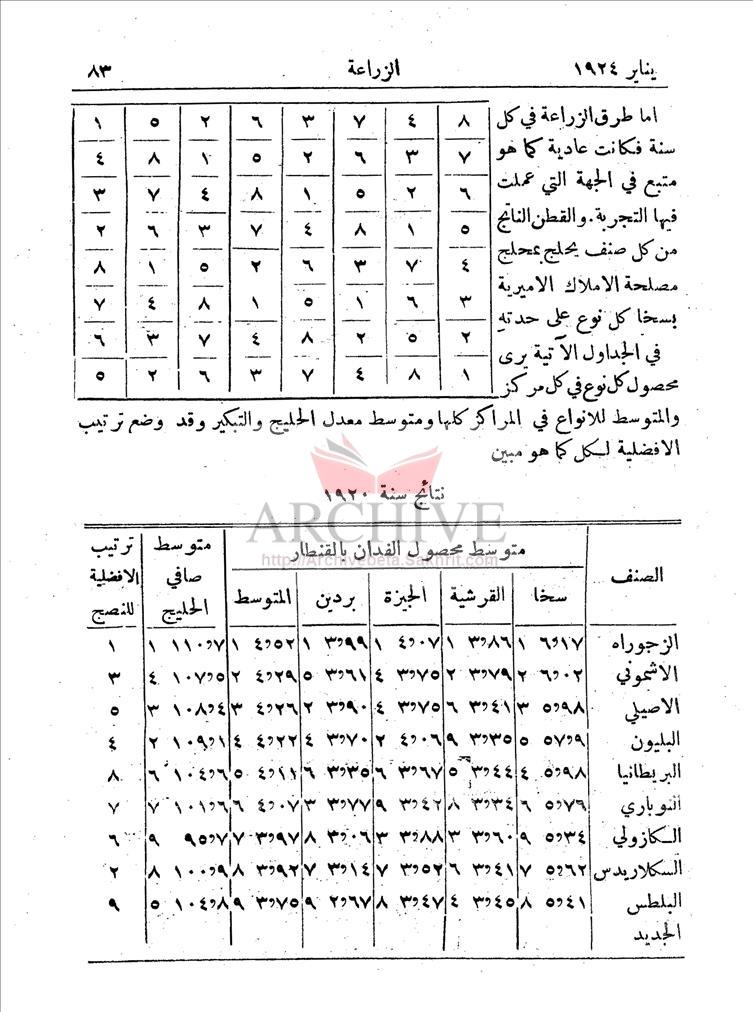 يناير ١٩٢٤ الزراعة ٨٣
اما طرق الزراعة في كل
سنة فكانت عادية كما هو
متبع في الجهة التي عملت
فيها التجربة. والقطن الناتج
من كل صنف يحلج بمحلج
مصلحة الاملاك الاميرية
بسخا كل نوع على حدته
في الجداول الآتية يرى
محصول كل نوع في كل مركز
٨ ٤ ٧ ٣ ٦ ٢ ٥ ١
٧ ٣ ٦ ٢ ٥ ١ ٨ ٤
٦ ٢ ٥ ١ ٨ ٤ ٧ ٣
٥ ١ ٨ ٤ ٧ ٣ ٦ ٢
٤ ٧ ٣ ٦ ٢ ٥ ١ ٨
٣ ٦ ١ ٥ ١ ٨ ٤ ٧
٢ ٥ ٢ ٨ ٤ ٧ ٣ ٦
١ ٨ ٤ ٧ ٣ ٦ ٢ ٥
والمتوسط للانواع في المراكز كلها ومتوسط معدل الحليج والتبكير وقد وضع ترتيب
الافضلية لكل كما هو مبين
نتائج سنة ١٩٢٠
ARCHIVE
http://Archivebeta.Sakhrit.com
الصنف متوسط محصول الفدان بالقنطار متوسط صافي الحليج ترتيب الافضلية للنصج
سخا القرشية الجيزة بردين المتوسط
الزجوراه ٦٫١٧ ١ ٣٫٨٦ ١ ٤٫٠٧ ١ ٣٫٩٩ ١ ٤٫٥٢ ١ ١١٠٫٧ ١ ١
الاشموني ٦٫٠٢ ٢ ٣٫٧٩ ٢ ٣٫٧٥ ٤ ٣٫٦١ ٥ ٤٫٢٩ ٢ ١٠٧٫٥ ٤ ٣
الاصيلي ٥٫٩٨ ٣ ٣٫٤١ ٦ ٣٫٧٥ ٤ ٣٫٩٠ ٢ ٤٫٢٦ ٣ ١٠٨٫٤ ٣ ٥
البليون ٥٫٧٩ ٥ ٣٫٣٥ ٩ ٤٫٠٦ ٢ ٣٫٧٠ ٤ ٤٫٢٢ ٤ ١٠٩٫١ ٢ ٤
البريطانيا ٥٫٩٨ ٤ ٣٫٤٤ ٥ ٣٫٦٧ ٦ ٣٫٣٥ ٦ ٤٫١١ ٥ ١٠٤٫٦ ٦ ٨
النوباري ٥٫٧٦ ٦ ٣٫٣٤ ٨ ٣٫٤٢ ٩ ٣٫٧٧ ٣ ٤٫٠٧ ٦ ١٠١٫٦ ٧ ٧
الكازولي ٥٫٣٤ ٩ ٣٫٦٠ ٣ ٣٫٨٨ ٣ ٣٫٠٦ ٨ ٣٫٩٧ ٧ ٩٥٫٧ ٩ ٦
السكلاريدس ٥٫٦٢ ٧ ٣٫٤١ ٦ ٣٫٥٢ ٧ ٣٫١٤ ٧ ٣٫٩٢ ٨ ١٠٠٫٩ ٨ ٢
البلطس ٥٫٤١ ٨ ٣٫٤٥ ٤ ٣٫٤٧ ٨ ٢٫٦٧ ٩ ٣٫٧٥ ٩ ١٠٤٫٨ ٥ ٩
الجديد